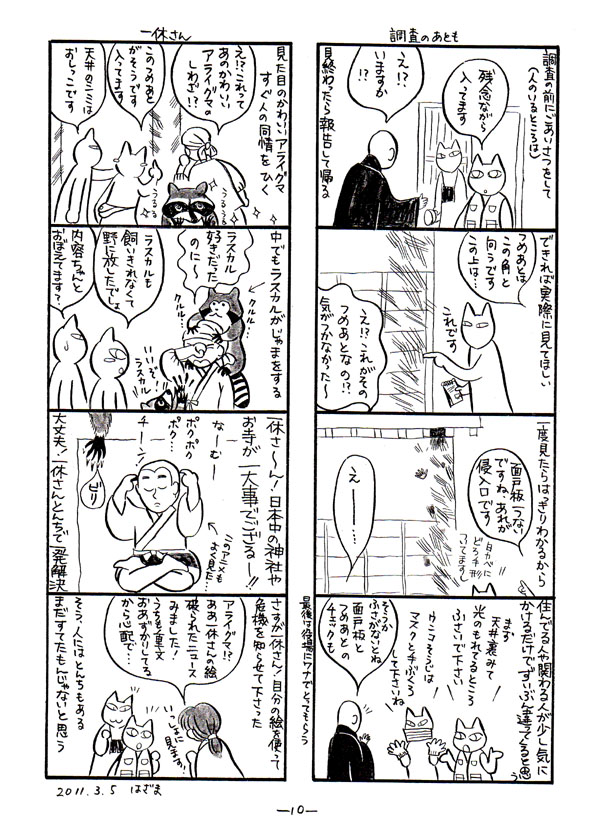 調査のあとも
調査の前にごあいさつをして
(人のいるところは)
残念ながら
入ってます
え!?
いますか
!?
見終わったら報告して帰る
できれば実際に見てほしい
つめあとは
この角と
向うです
この上は…
これです
え!?これがその
つめあとなの!?
気がつかなかった〜
一度見たらはっきりわかるから
面戸板一つない
ですね、あれが
侵入口です
白カベに
どろ手形
ついてますし
えー――…
住んでる人や関わる人が少し気に
かけるだけでずいぶん違ってくると思う
まず
天井裏みて
光のもれてるところ
ふさいで下さい
ゆかこそうじは
マスクと手ぶくろ
して下さいね
そうか
ふさがないとね
面戸板と
つめあとの
チェックも
最後は役場にワナでとってもらう
一休さん
見た目のかわいいアライグマ
すぐ人の同情をひく
え!?これって
あのかわいい
アライグマの
しわざ!?
このつめあと
がそうです
入ってます
天井のシミは
おしっこです
うるうる
うるうる
中でもラスカルがじゃまをする
ラスカル
好きだった
のに〜
クルル…
クルル…
ラスカルも
飼いきれなくて
野に放したでしょ
内容ちゃんと
おぼえてます?
いいぞ!
ラスカル
一休さ〜ん!日本中の神社や
お寺が一大事でござるー!!
なーむー
ポクポク
ポク…
チーン
このアニメも
よく見た…
ビリ
大丈夫!一休さんとんちで一発解決
さすが一休さん!自分の絵を使って
危機を知らせて下さった
アライグマ!?
ああ一休さんの絵
破られたニュース
みました!
うちも重文
おあずかりしてる
から心配で…
いっぱつに
散ります!
そう、人にはとんちもある
まだすてたもんじゃないと思う
2011.3.5 はざま
―10―